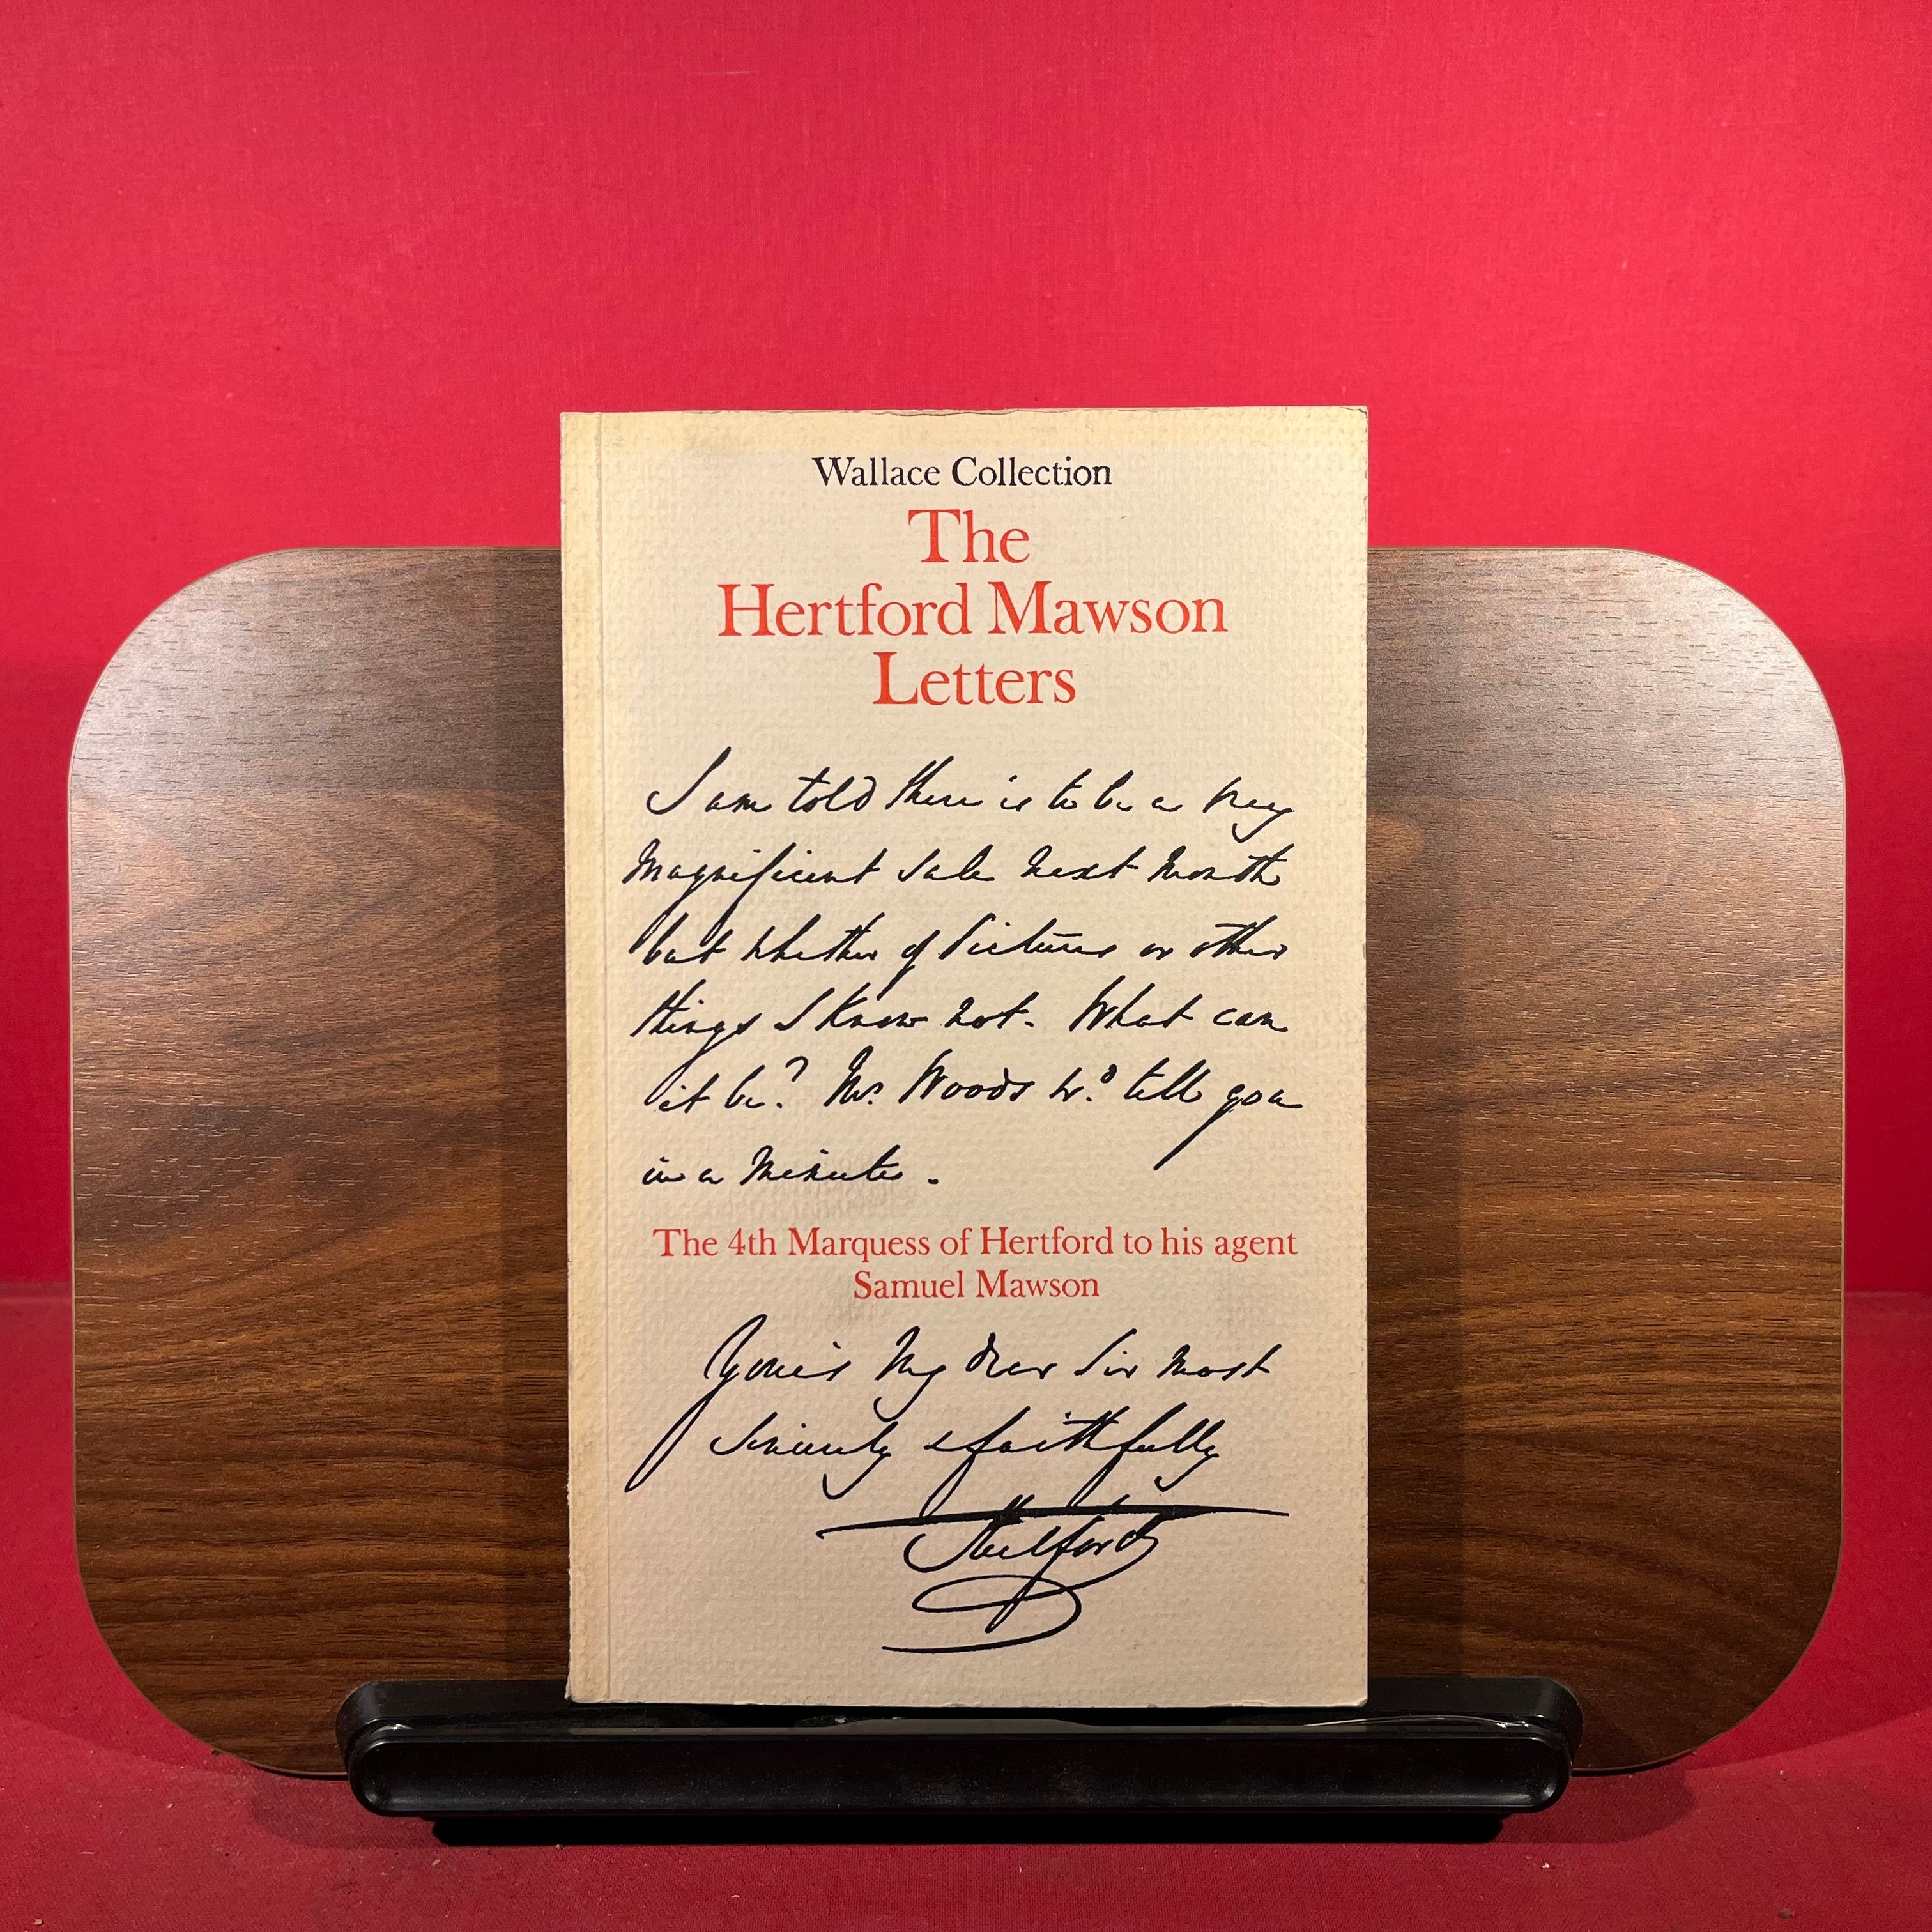 Wallace Collection
The
Hertford Mawson
Letters
I am told there is to be a very
Magnificent Sale next Month
but whether of Pictures or other
things I know not. What can
it be? Mr. Woods wd. tell you
in a Minute.
The 4th Marquess of Hertford to his agent
Samuel Mawson
Yours My dear Sir most
Sincerely & faithfully
Hertford